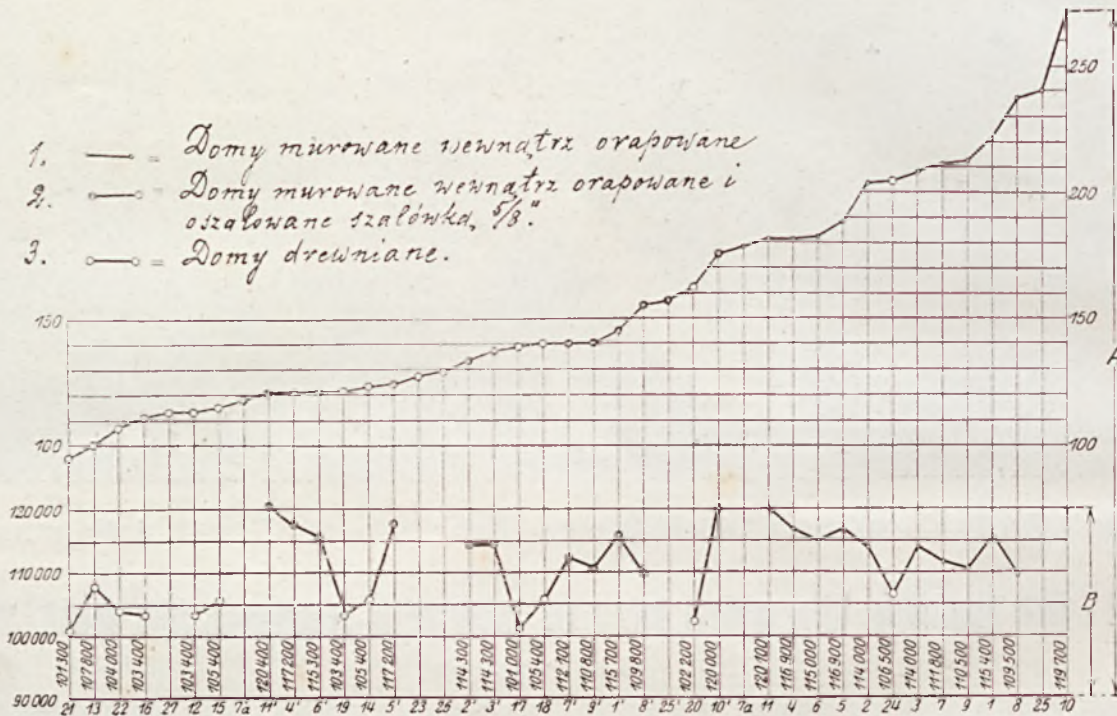 250
1. = Domy murowane wewnątrz orapowane
2. = Domy murowane wewnątrz orapowane i
oszalowane szalówką 5/8".
3. = Domy drewniane.
200
150 150
A
100 100
120 000
110 000
B
100 000
101 300 107 800 104 000 103 400 103 400 105 400 120 400 117 200 115 300 103 400 105 400 117 200 114 300 114 300 101 000 105 400 112 100 110 800 115 700 109 800 102 200 120 000 120 100 116 900 115 000 116 900 114 000 106 500 114 000 111 800 110 500 115 400 109 500 119 700
90 000
21 13 22 16 27 12 15 7a' 11' 4' 6' 19 14 5' 23 26 2' 3' 17 18 7' 9' 1' 8' 25' 20 10' 7a 11 4 6 5 2 24 3 7 9 1 8 25 10